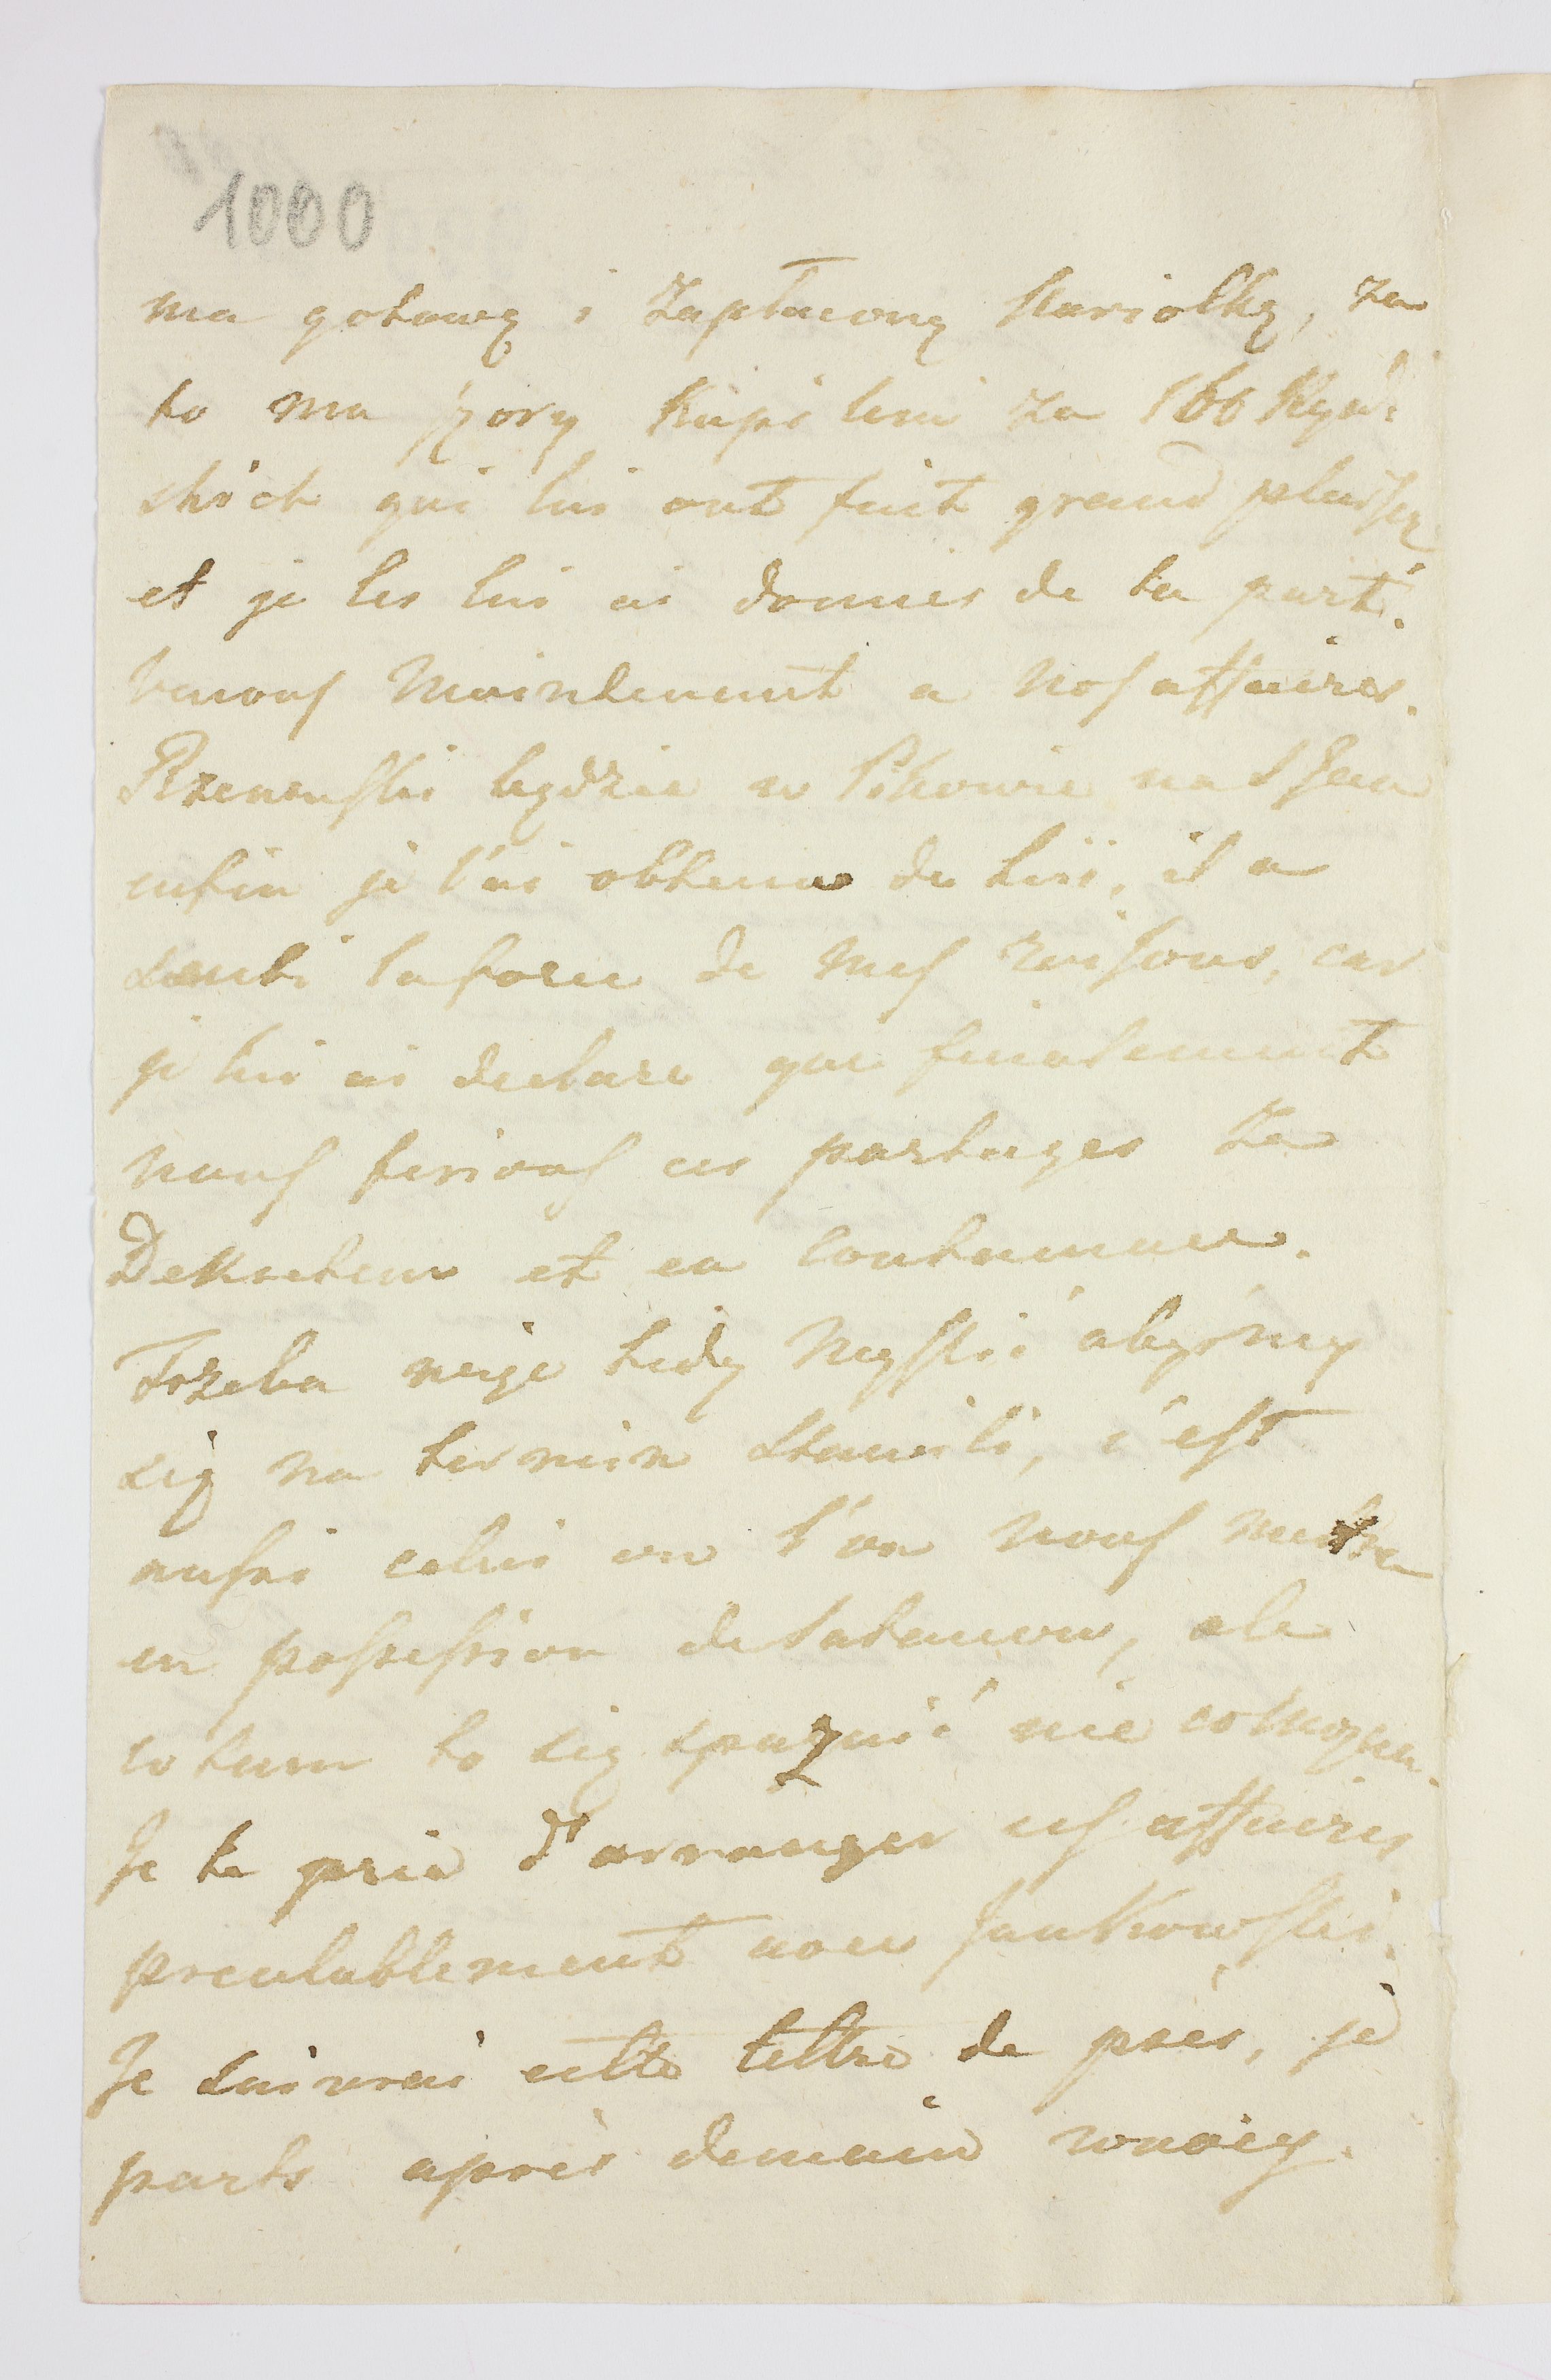 1000
ma gotową i zapłaconą Kariolkę, za
to ma szory Kupiłem za 160 Ryń:
skich qui lui ont fait grand plaisir
et je les lui ai donnés de ta part.
Venons maintenant a nos affaires.
Rzewuski będzie w Pikowie na
enfin je l'ai obtenu de lui, il a
senti la force de mes raisons, car
je lui ai declare que finalement
nous ferions ces partages za
Dekretem et en contumace.
Trzeba więc tedy Myslić abyśmy
się na termin stawili, c'est
aussi celui ou l'on nous mettra
en possession de, ale
w tem to się spuznić nie co można.
Je te prie d'arranger ces affaires
prealablement avec Jankowski.
Je suivrai cette lettre de près, je
parts après demain w nocy.